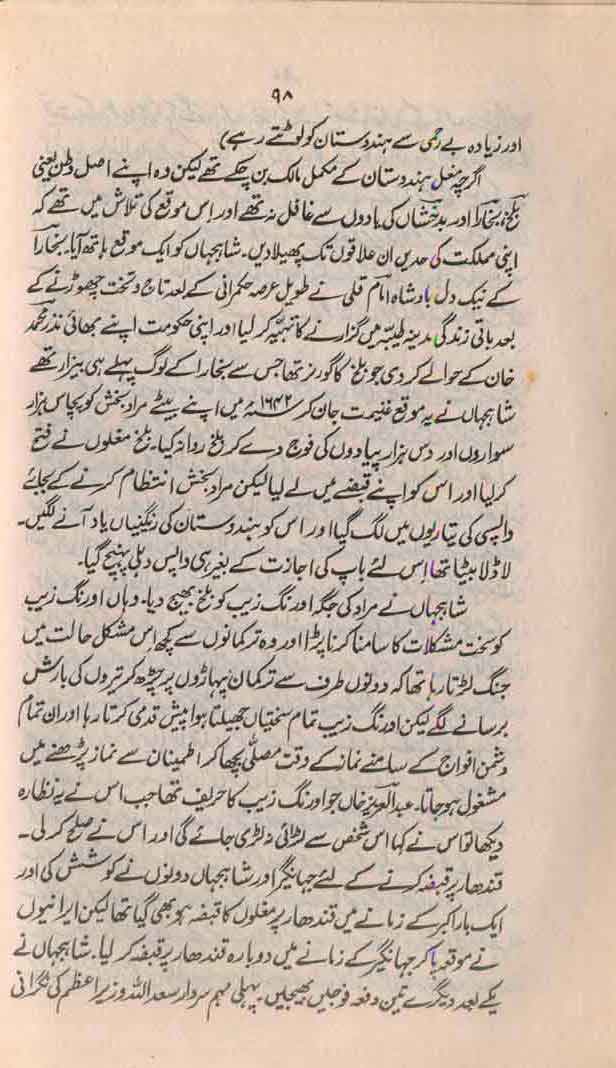 ۹۸
اور زیادہ بے رحمی سے ہندوستان کو لوٹتے رہے)
اگرچہ مغل ہندوستان کے مکمل مالک بن چکے تھے لیکن وہ اپنے اصل وطن یعنی
بلخ، بخارا اور بدخشاں کی یادوں سے غافل نہ تھے اور اِس موقع کی تلاش میں تھے کہ
اپنی مملکت کی حدیں ان علاقوں تک پھیلا دیں۔ شاہجہاں کو ایک موقع ہاتھ آیا۔ بخارا
کے نیک دل بادشاہ امام قلی نے طویل عرصہ حکمرانی کے بعد تاج و تخت چھوڑنے کے
بعد باقی زندگی مدینہ طیبہ میں گزارنے کا تہیّہ کر لیا اور اپنی حکومت اپنے بھائی نذر محمد
خان کے حوالے کر دی جو بلخ کا گورنر تھا جس سے بخارا کے لوگ پہلے ہی بیزار تھے
شاہجہاں نے یہ موقع غنیمت جان کر ۱۶۴۲ء میں اپنے بیٹے مراد بخش کو پچاس ہزار
سواروں اور دس ہزار پیادوں کی فوج دے کر بلخ روانہ کیا۔ بلخ مغلوں نے فتح
کر لیا اور اس کو اپنے قبضے میں لے لیا لیکن مراد بخش انتظام کرنے کے بجائے
واپسی کی تیاریوں میں لگ گیا اور اس کو ہندوستان کی رنگینیاں یاد آنے لگیں۔
لاڈلا بیٹا تھا اِس لئے باپ کی اجازت کے بغیر ہی واپس دہلی پہنچ گیا۔
شاہجہاں نے مراد کی جگہ اورنگ زیب کو بلخ بھیج دیا۔ وہاں اورنگ زیب
کو سخت مشکلات کا سامنا کرنا پڑا اور وہ ترکمانوں سے کچھ اِس مشکل حالت میں
جنگ لڑتا رہا تھا کہ دونوں طرف سے ترکمان پہاڑوں پر چڑھ کر تیروں کی بارش
برسانے لگے لیکن اورنگ زیب تمام سختیاں جھیلتا ہوا پیش قدمی کرتا رہا اور ان تمام
دشمن افواج کے سامنے نماز کے وقت مصلّیٰ بچھا کر اطمینان سے نماز پڑھنے میں
مشغول ہو جاتا۔ عبدالعزیز خاں جو اورنگ زیب کا حریف تھا جب اس نے یہ نظارہ
دیکھا تو اس نے کہا اس شخص سے لڑائی نہ لڑی جائے گی اور اس نے صلح کر لی۔
قندھار پر قبضہ کرنے کے لئے جہانگیر اور شاہجہاں دونوں نے کوشش کی اور
ایک بار اکبر کے زمانے میں قندھار پر مغلوں کا قبضہ ہو بھی گیا تھا لیکن ایرانیوں
نے موقعہ پا کر جہانگیر کے زمانے میں دوبارہ قندھار پر قبضہ کر لیا۔ شاہجہاں نے
یکے بعد دیگرے تین دفعہ فوجیں بھیجیں پہلی مہم سردار سعد اللہ وزیر اعظم کی نگرانی